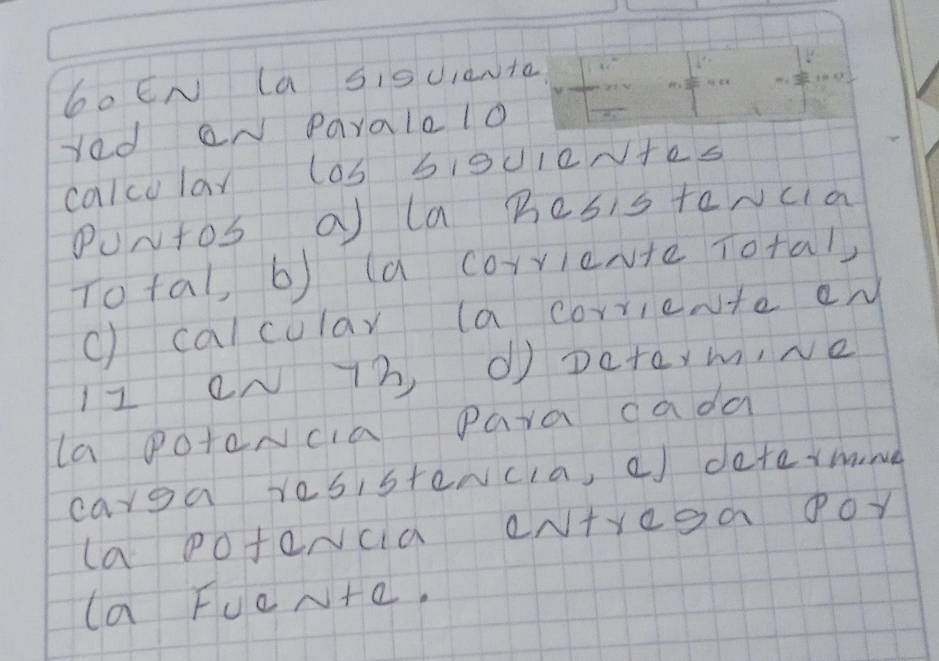 6o EN la siguiente
red en Paralelo
calcular los siguientes
Puntos a) la Resistencia
Total, b) la corriente Total,
c) calcular la corriente en
I1 en
d) Determine
la potencia para cada
carga resistencia, e) determine
la potencia entrega por
la Fuente.